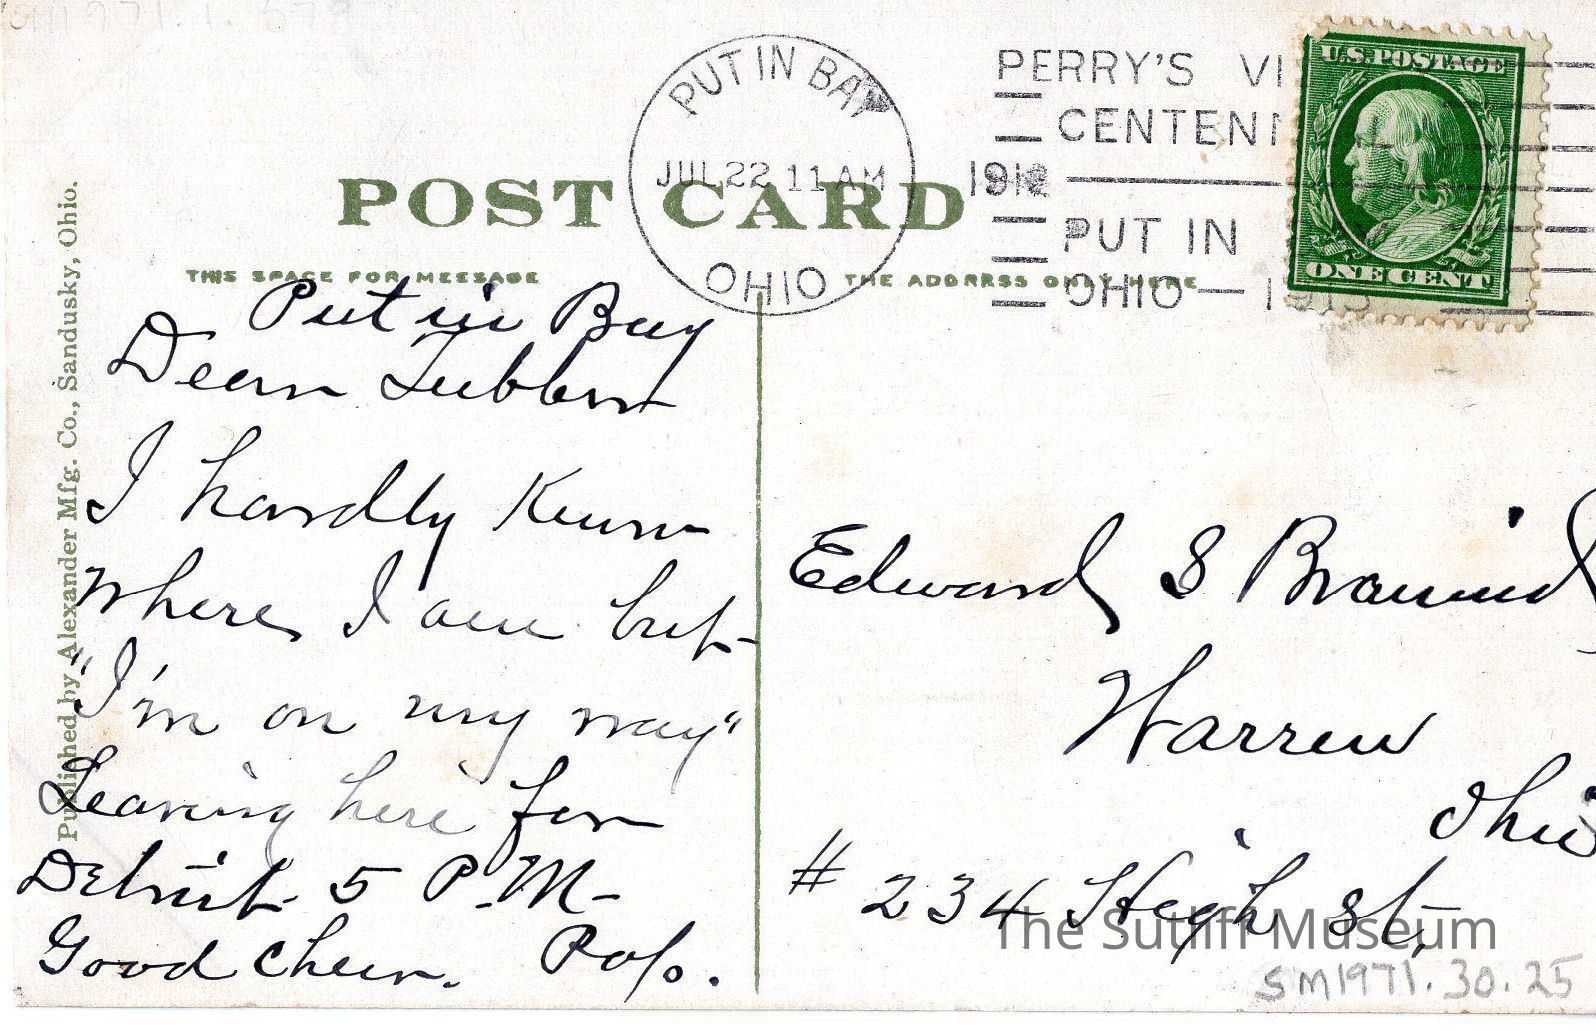 PUT IN BAY
JUL 22 11 AM
1912
OHIO
PERRY'S VI
CENTEN
PUT IN
OHIO — 1913
U.S. POSTAGE
ONE CENT
POST CARD
THIS SPACE FOR MESSAGE
THE ADDRESS ONLY HERE
Published by Alexander Mfg. Co., Sandusky, Ohio.
Put in Bay
Dear
I hardly know
where I am but
"I'm on my way"
Leaving here for
Detroit 5 P.M.
Good cheer. Pop.
Edward S Brainard
Warren
Ohio
# 234 High St,
The Sutliff Museum
SM1971.30.25